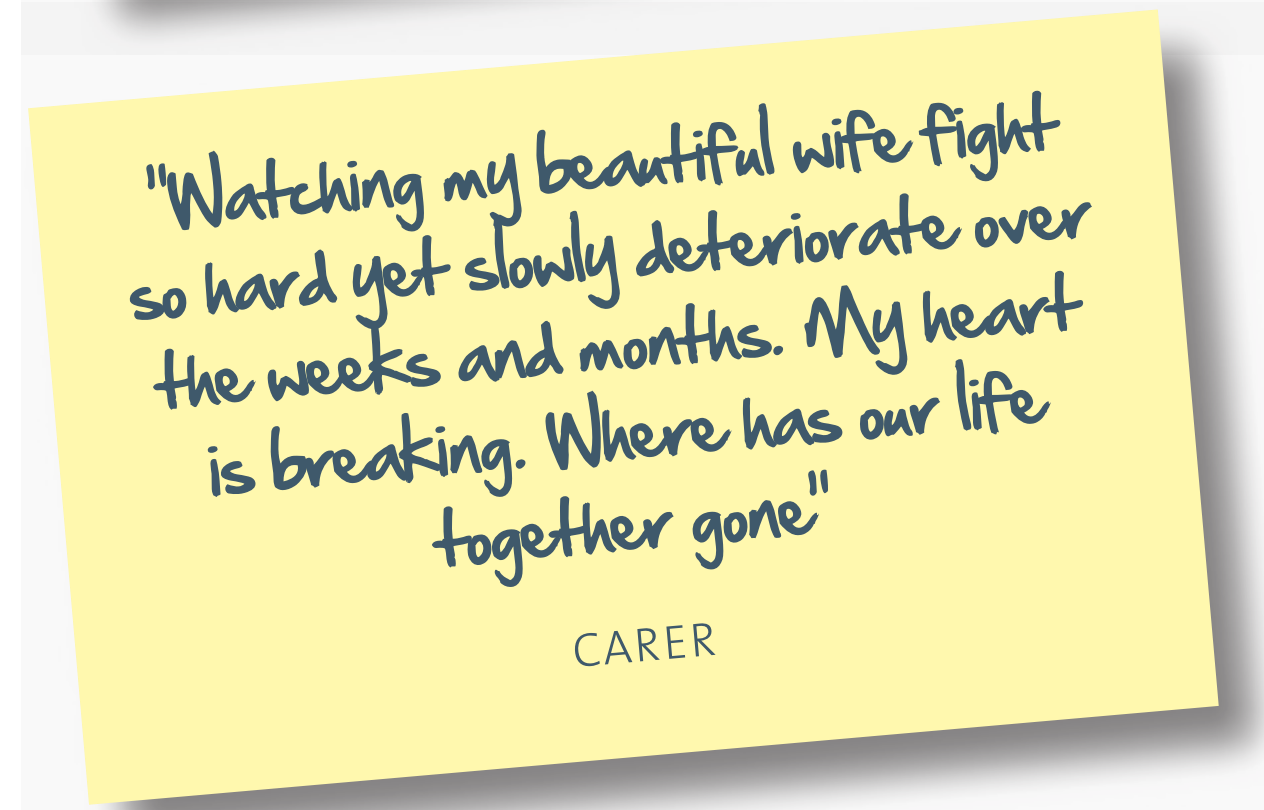 "Watching my beautiful wife fight
so hard yet slowly deteriorate over
the weeks and months. My heart
is breaking. Where has our life
together gone"
CARER